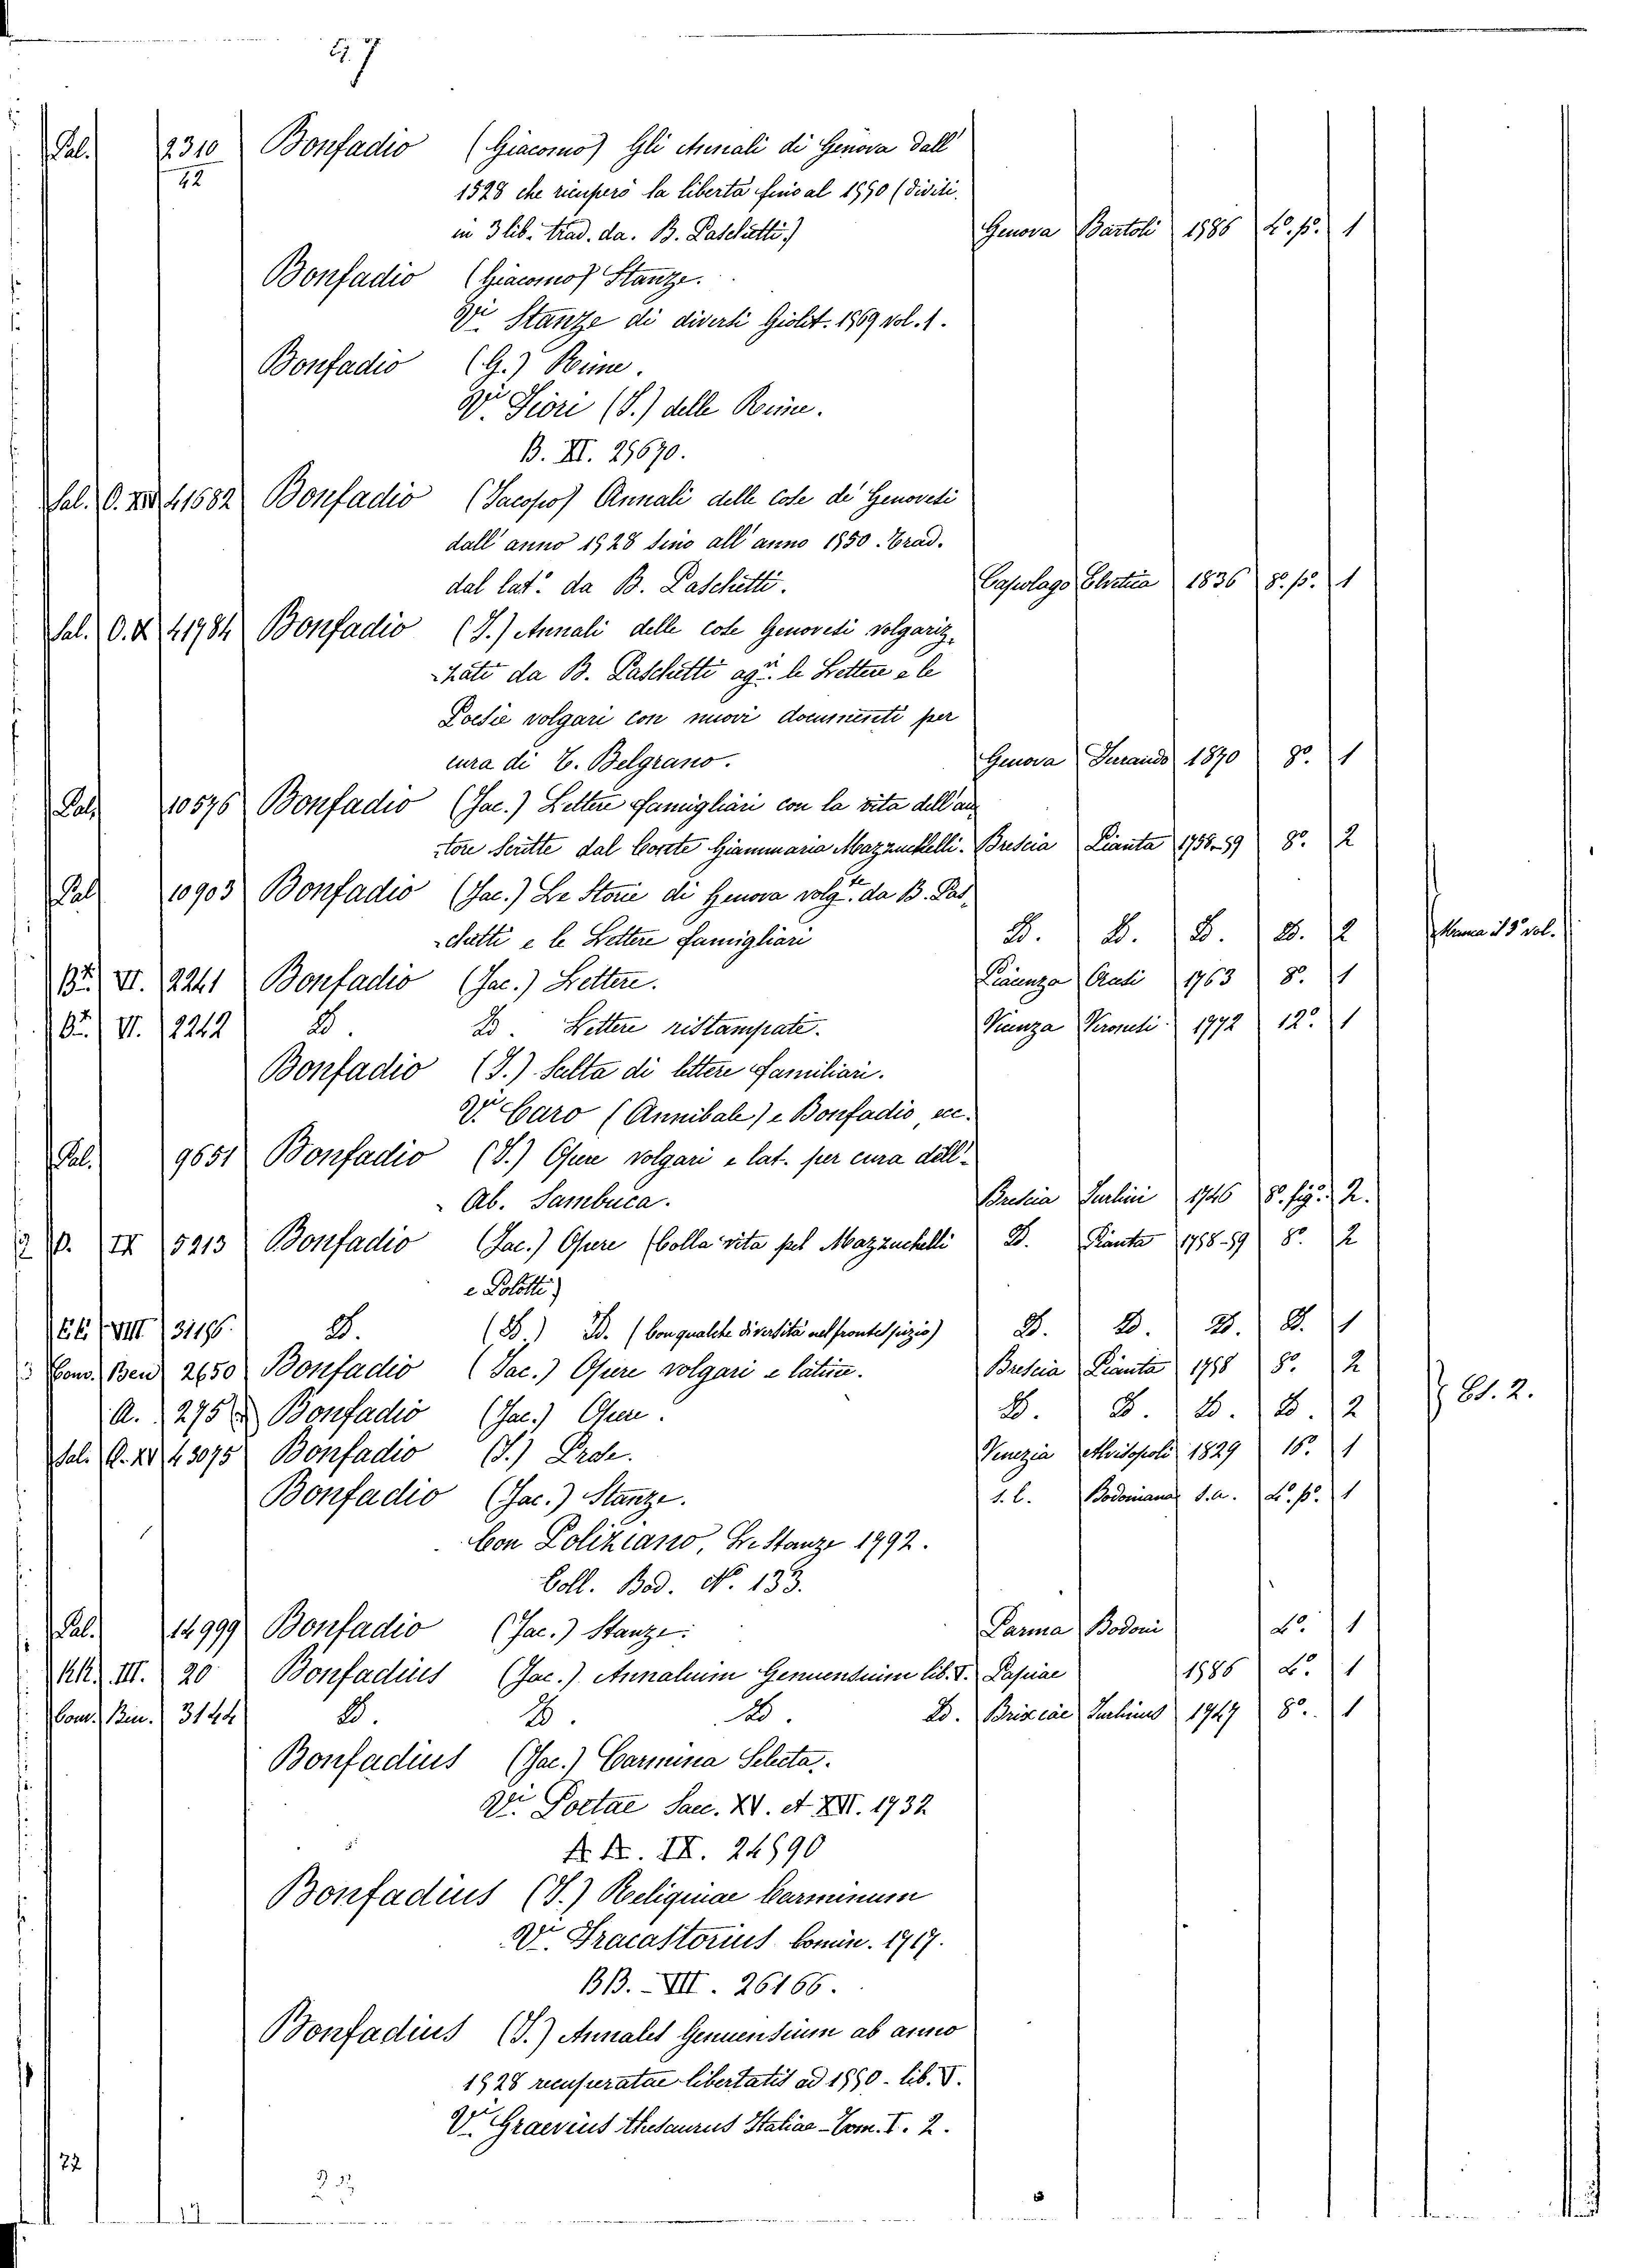 47
Pal. 2310 Bonfadio (Giacomo) Gli Annali di Genova dall'
22
1528 che ricuperò la libertà fino al 1550 (divisi
in 3 lib. trad. da. B. Paschetti.) Genova Bartoli 1586 4º. p. 1
Bonfadio (Giacomo) Stanze.
Vi. Stanze di diversi Giolit. 1569 vol. 1.
Bonfadio (G.) Rime.
Vi. Fiori (I.) delle Rime.
B. XI. 25690.
Sal. O. XIV 41582 Bonfadio (Jacopo) Annali delle cose de' Genovesi
dall'anno 1528 sino all'anno 1550. Trad.
dal lat.º da B. Paschetti. Capolago Elvetica 1836 8º. p. 1
Sal. O. X 41784 Bonfadio (J.) Annali delle cose Genovesi volgariz-
zati da B. Paschetti ag.ti le Lettere e le
Poesie volgari con nuovi documenti per
cura di L. Belgrano. Genova 1870 8º. 1
Pal. 10576 Bonfadio (Jac.) Lettere famigliari con la vita dell'au-
tore scritte dal Conte Giammaria Mazzuchelli. Brescia Pianta 1758-59 8º. 2
Pal 10903 Bonfadio (Jac.) Le Storie di Genova volg.te da B. Pas-
chetti e le Lettere famigliari D. D. D. D. 2 Manca il 3º vol.
VI. 2241 Bonfadio (Jac.) Lettere. Piacenza 1763 8º. 1
VI. 2242 D. D. Lettere ristampate. Vicenza Veronesi 1772 12º. 1
Bonfadio (J.) Scelta di lettere familiari.
Vi Caro (Annibale) e Bonfadio, ecc.
Pal. 9651 Bonfadio (J.) Opere volgari e lat. per cura dell'
Ab. Sambuca. Brescia Turlini 1746 8º. fig. 2.
2 P. IX 5213 Bonfadio (Jac.) Opere (Colla vita pel Mazzuchelli D. Pianta 1758-59 8º. 2
e Polotti)
EE VIII 31196. D. (D.) D. (Con qualche diversità nel frontespizio) D. D. D. D. 1
3 Com. Ben 2650 Bonfadio (Jac.) Opere volgari e latine. Brescia Pianta 1758 8º. 2
A. 275 Bonfadio (Jac.) Opere. D. D. D. D. 2 Es. 2.
Sal. Q. XV 43075 Bonfadio (J.) Prose. Venezia Alvisopoli 1829 16º. 1
Bonfadio (Jac.) Stanze. s. l. Bodoniana s. a. 4º. p. 1
Con Poliziano, Le Stanze 1792.
Coll. Bod. Nº. 133.
Pal. 14999 Bonfadio (Jac.) Stanze. Parma Bodoni 4º. 1
KK. III. 20 Bonfadius (Jac.) Annalium Genuensium lib. V. Papiae 1586 4º. 1
Com. Ben. 3144 D. D. D. D. Brixiae Turlinus 1747 8º. 1
Bonfadius (Jac.) Carmina Selecta.
Vi. Poetae Saec. XV. et XVI. 1732
A.A. IX. 24590
Bonfadius (J.) Reliquiae Carminum
Vi. Fracastorius Comin. 1717.
BB. - VII. 26166.
Bonfadius (J.) Annales Genuensium ab anno
1528 recuperatae libertatis ad 1550. lib. V.
Vi Graevius Thesaurus Italiae - Tom. I. 2.
22
17